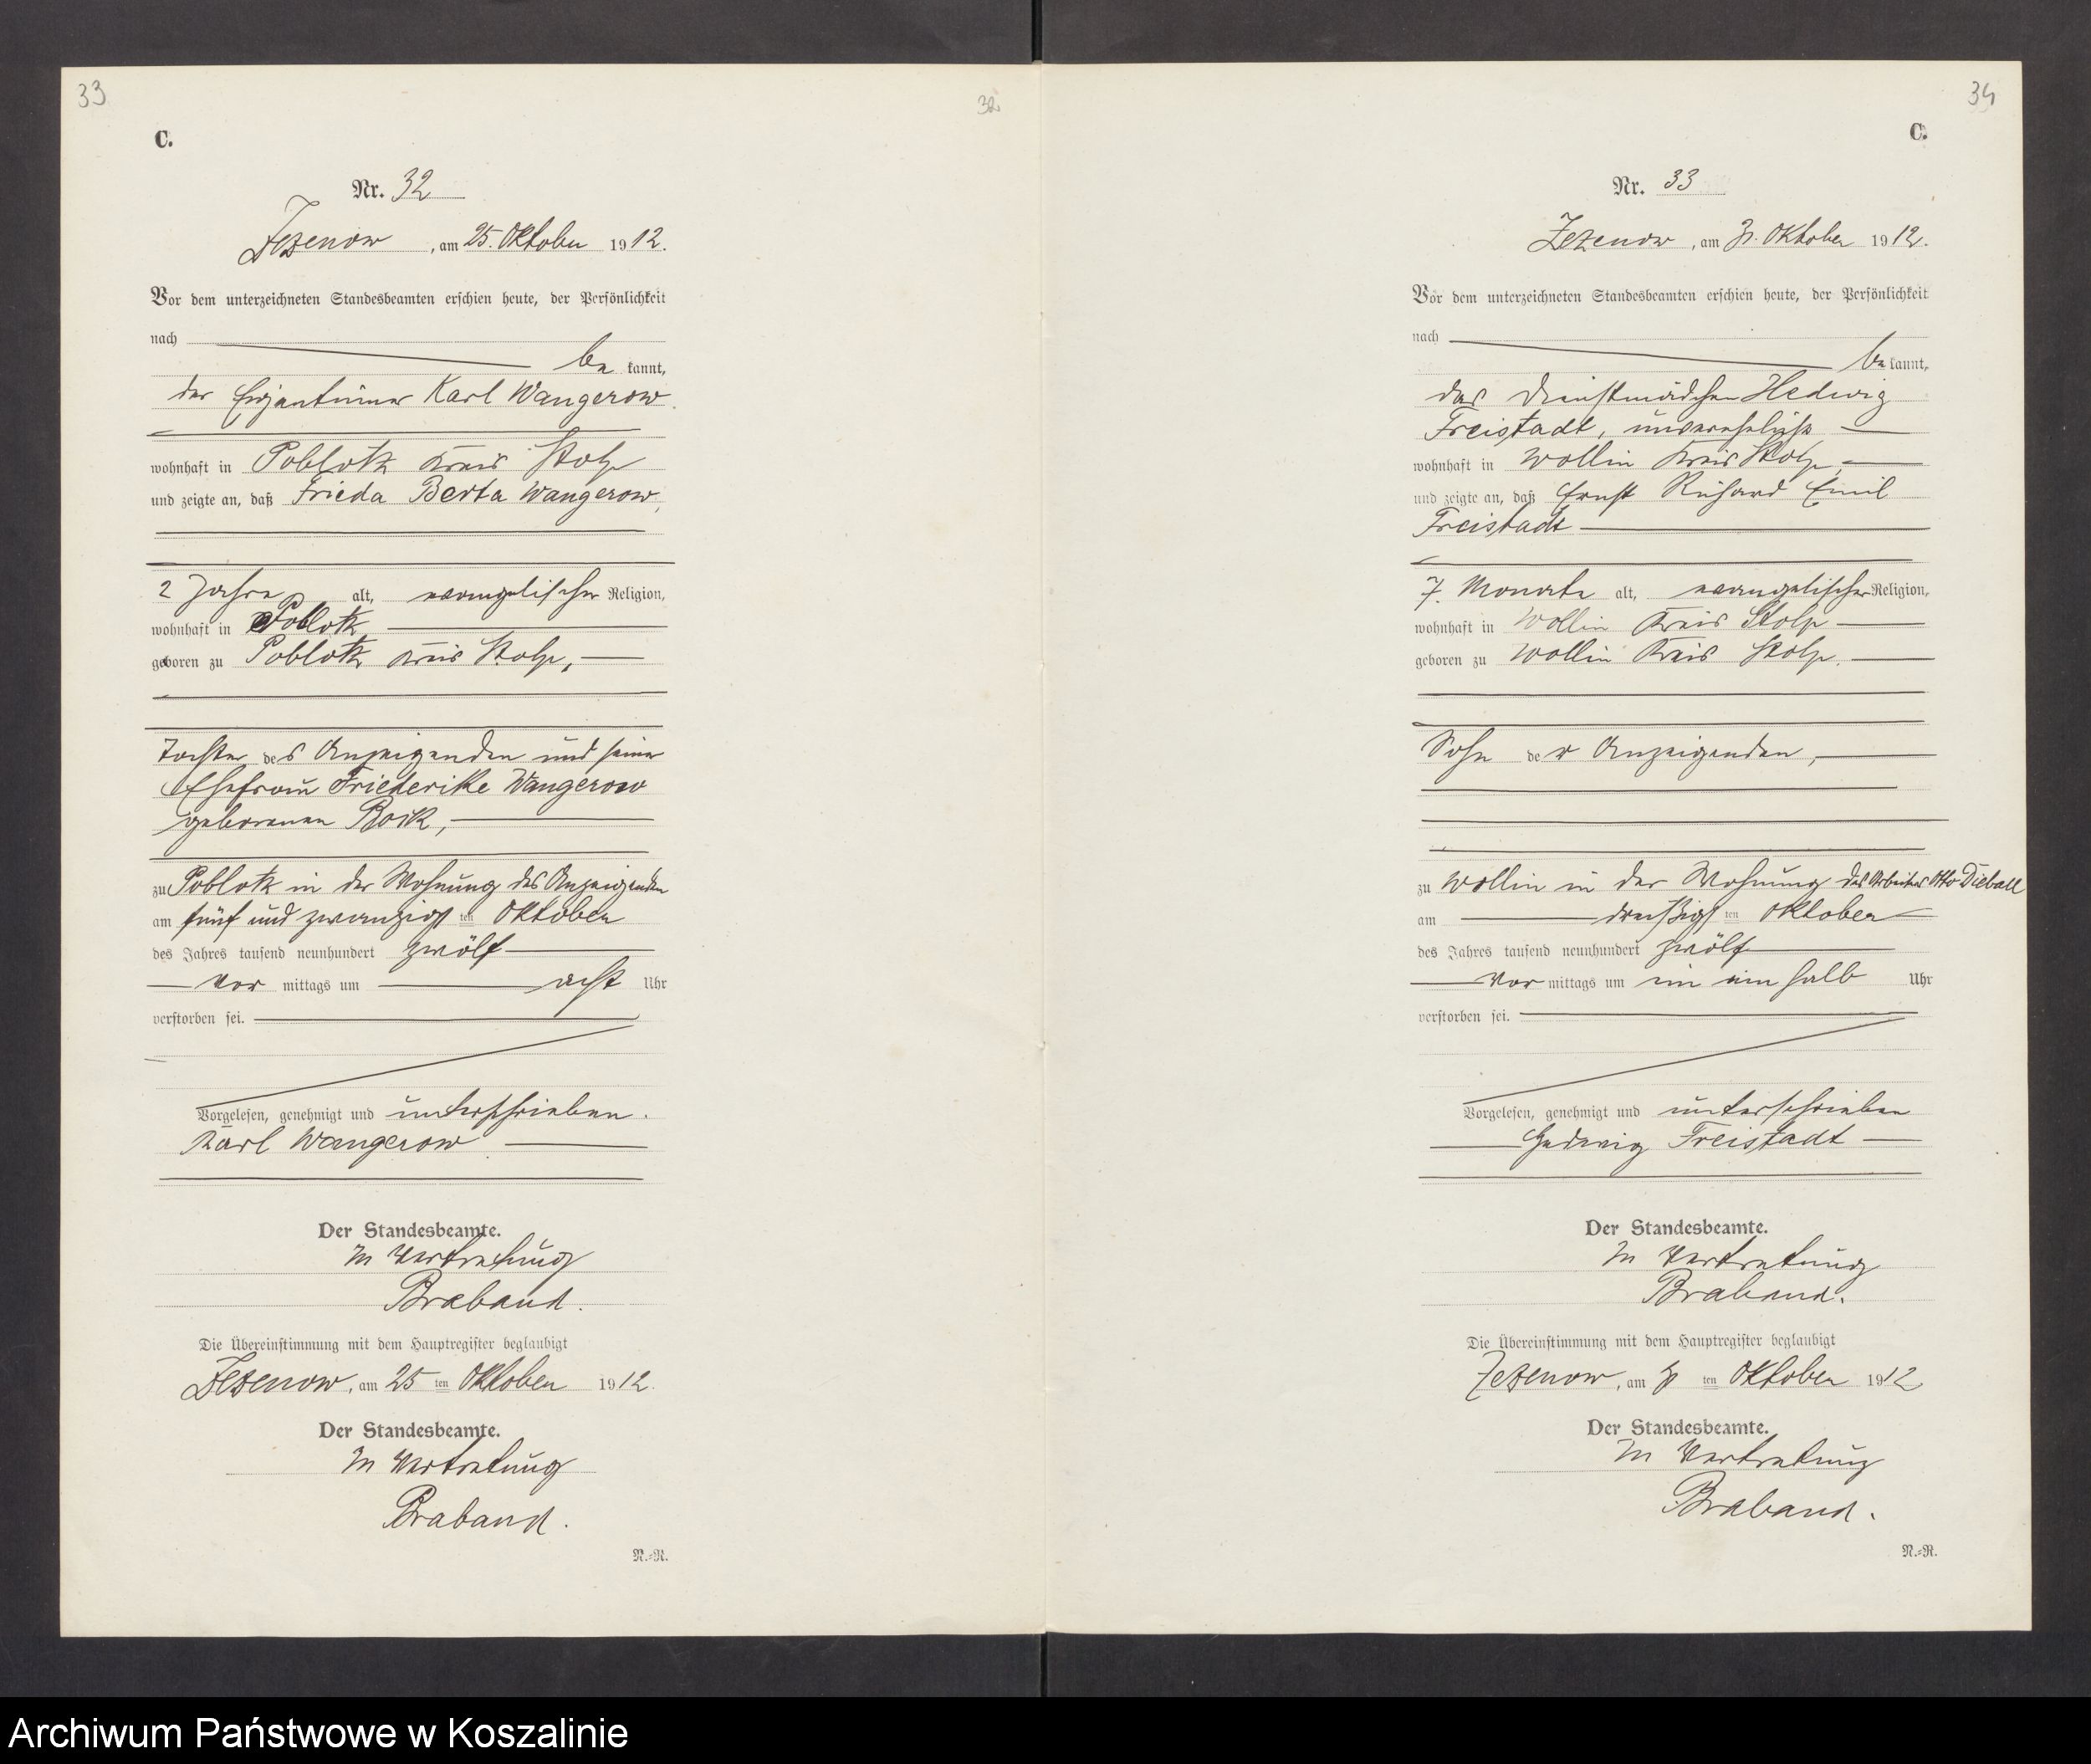 33
32
C.
Nr. 32
Zezenow, am 25. Oktober 1912.
Vor dem unterzeichneten Standesbeamten erschien heute, der Persönlichkeit
nach
be kannt,
der Eigentümer Karl Wangerow
wohnhaft in Poblotz Kreis Stolp
und zeigte an, daß Frieda Berta Wangerow,
2 Jahre alt, evangelischer Religion,
wohnhaft in Poblotz
geboren zu Poblotz Kreis Stolp,
Tochter des Anzeigenden und seiner
Ehefrau Friederike Wangerow
geborenen Bock,
zu Poblotz in der Wohnung des Anzeigenden
am fünf und zwanzigsten Oktober
des Jahres tausend neunhundert zwölf
Vor mittags um acht Uhr
verstorben sei.
Vorgelesen, genehmigt und unterschrieben.
Karl Wangerow
Der Standesbeamte.
In Vertretung
Braband.
Die Übereinstimmung mit dem Hauptregister beglaubigt
Zezenow, am 25 ten Oktober 1912.
Der Standesbeamte.
In Vertretung
Braband.
N.=R.
34
C.
Nr. 33
Zezenow, am 31. Oktober 1912.
Vor dem unterzeichneten Standesbeamten erschien heute, der Persönlichkeit
nach
be kannt,
das Dienstmädchen Hedwig
Freistadt, unverehelicht
wohnhaft in Wollin Kreis Stolp,
und zeigte an, daß Ernst Richard Emil
Freistadt
7. Monate alt, evangelischer Religion,
wohnhaft in Wollin Kreis Stolp
geboren zu Wollin Kreis Stolp,
Sohn der Anzeigenden,
zu Wollin in der Wohnung des Arbeiters Otto Dieball
am dreißigsten Oktober
des Jahres tausend neunhundert zwölf
Vor mittags um ein ein halb Uhr
verstorben sei.
Vorgelesen, genehmigt und unterschrieben
Hedwig Freistadt
Der Standesbeamte.
In Vertretung
Braband.
Die Übereinstimmung mit dem Hauptregister beglaubigt
Zezenow, am 31 ten Oktober 1912
Der Standesbeamte.
In Vertretung
Braband.
N.=R.
Archiwum Państwowe w Koszalinie